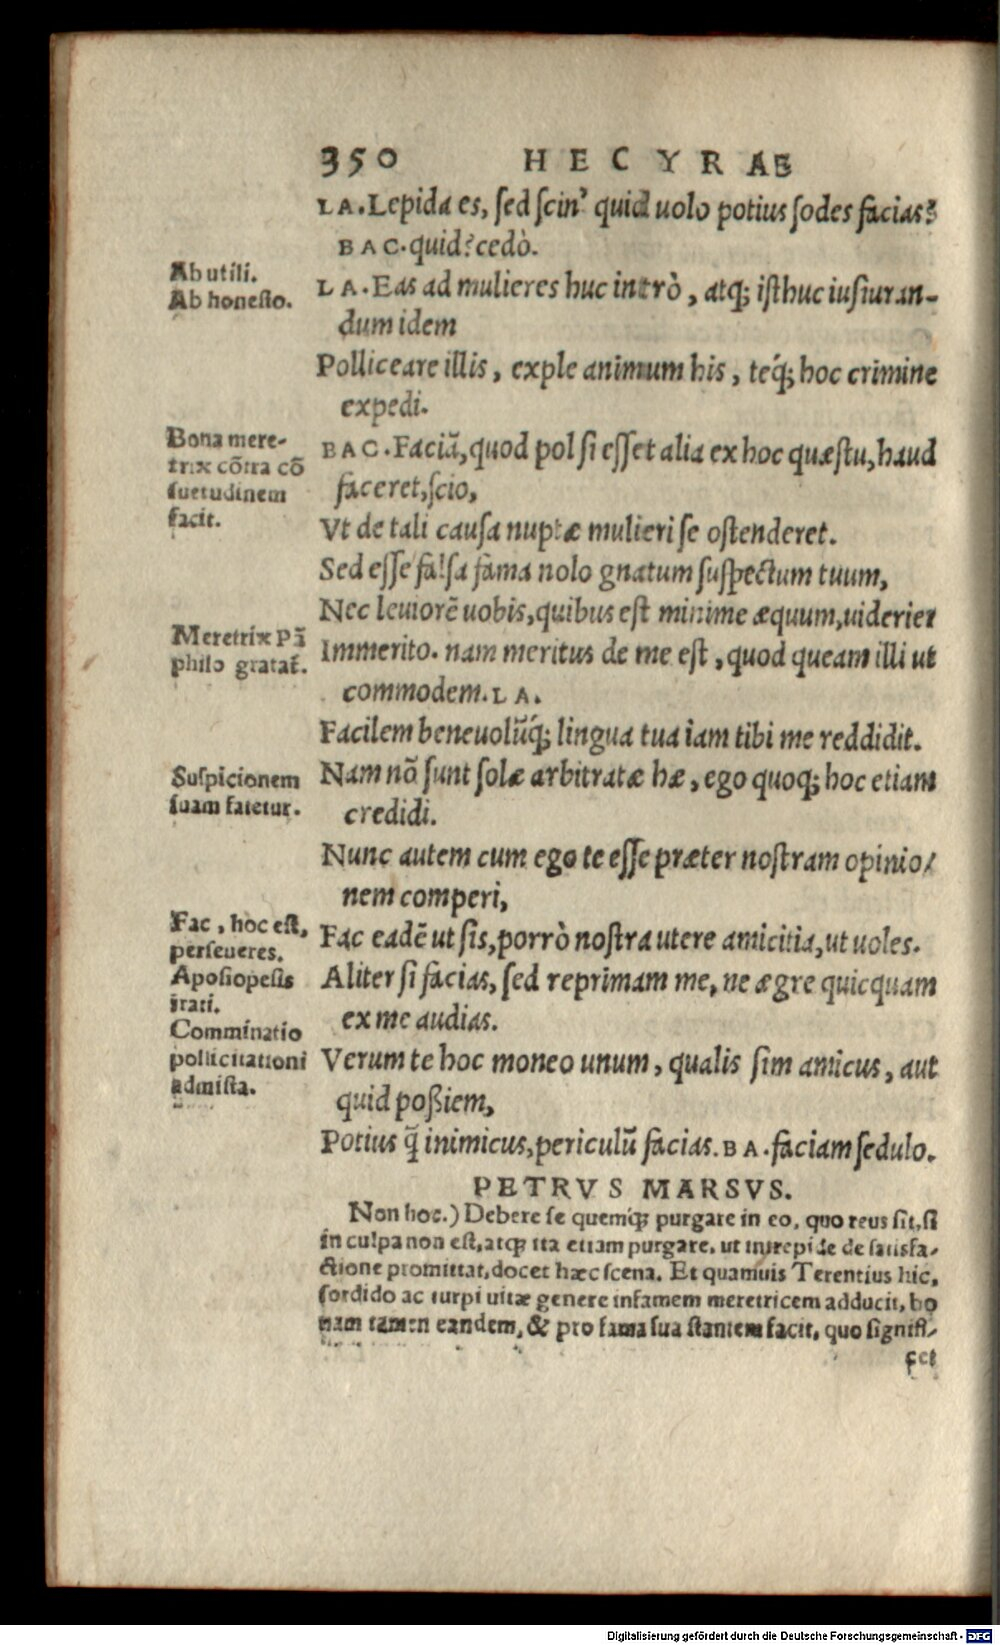 350 HECYRAE
LA. Lepida es, sed scin' quid uolo potius sodes facias?
BAC. quid? cedò.
Ab utili.
Ab honesto.
LA. Eas ad mulieres huc intrò, atq; isthuc iusiuran-
dum idem
Polliceare illis, exple animum his, teq́; hoc crimine
expedi.
Bona mere-
trix cõtra cõ
suetudinem
facit.
BAC. Faciã, quod pol si esset alia ex hoc quæstu, haud
faceret, scio,
Vt de tali causa nuptæ mulieri se ostenderet.
Sed esse falsa fama nolo gnatum suspectum tuum,
Nec leuiorẽ uobis, quibus est minime æquum, uiderier
Meretrix Pã
philo gratat̃.
Immerito. nam meritus de me est, quod queam illi ut
commodem. LA.
Facilem beneuolũq́; lingua tua iam tibi me reddidit.
Suspicionem
suam fatetur.
Nam nõ sunt solæ arbitratæ hæ, ego quoq; hoc etiam
credidi.
Nunc autem cum ego te esse præter nostram opinio/
nem comperi,
Fac, hoc est,
perseueres.
Aposiopesis
irati.
Comminatio
pollicitationi
admista.
Fac eadẽ ut sis, porrò nostra utere amicitia, ut uoles.
Aliter si facias, sed reprimam me, ne ægre quicquam
ex me audias.
Verum te hoc moneo unum, qualis sim amicus, aut
quid poßiem,
Potius q̃ inimicus, periculũ facias. BA. faciam sedulo.
PETRVS MARSVS.
Non hoc.) Debere se quemq; purgare in eo, quo reus sit, si
in culpa non est, atq; ita etiam purgare, ut intrepide de satisfa-
ctione promittat, docet hæc scena. Et quamuis Terentius hic,
sordido ac turpi uitæ genere infamem meretricem adducit, bo
nam tamen eandem, & pro fama sua stantem facit, quo signifi-
cet
Digitalisierung gefördert durch die Deutsche Forschungsgemeinschaft - DFG